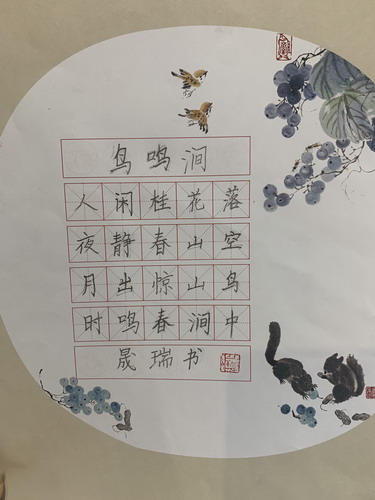 鸟鸣涧
人闲桂花落
夜静春山空
月出惊山鸟
时鸣春涧中
晟瑞书